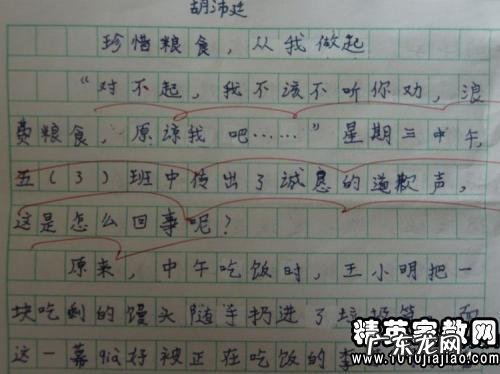 胡沛
珍惜粮食，从我做起
“对不起，我不该不听你劝，浪
费粮食，原谅我吧……”星期三中午，
五(3)班中传出了诚恳的道歉声，
这是怎么回事呢？
原来，中午吃饭时，王小明把一
块吃剩的馒头随手扔进了垃圾
这一幕刚好被正在吃饭的李
精英家教网